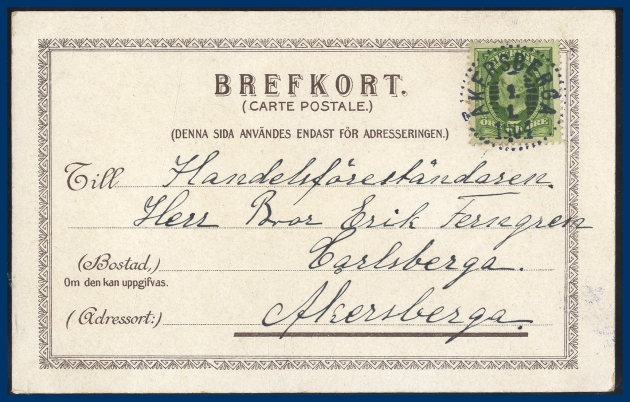 BREFKORT.
(CARTE POSTALE.)
(DENNA SIDA ANVÄNDES ENDAST FÖR ADRESSERINGEN.)
ÅKERSBERGA
1
1904
Till Handelsföreståndaren.
Herr Bror Erik Fernegren
(Bostad,) Carlsberga.
Om den kan uppgifvas.
(Adressort:) Åkersberga.